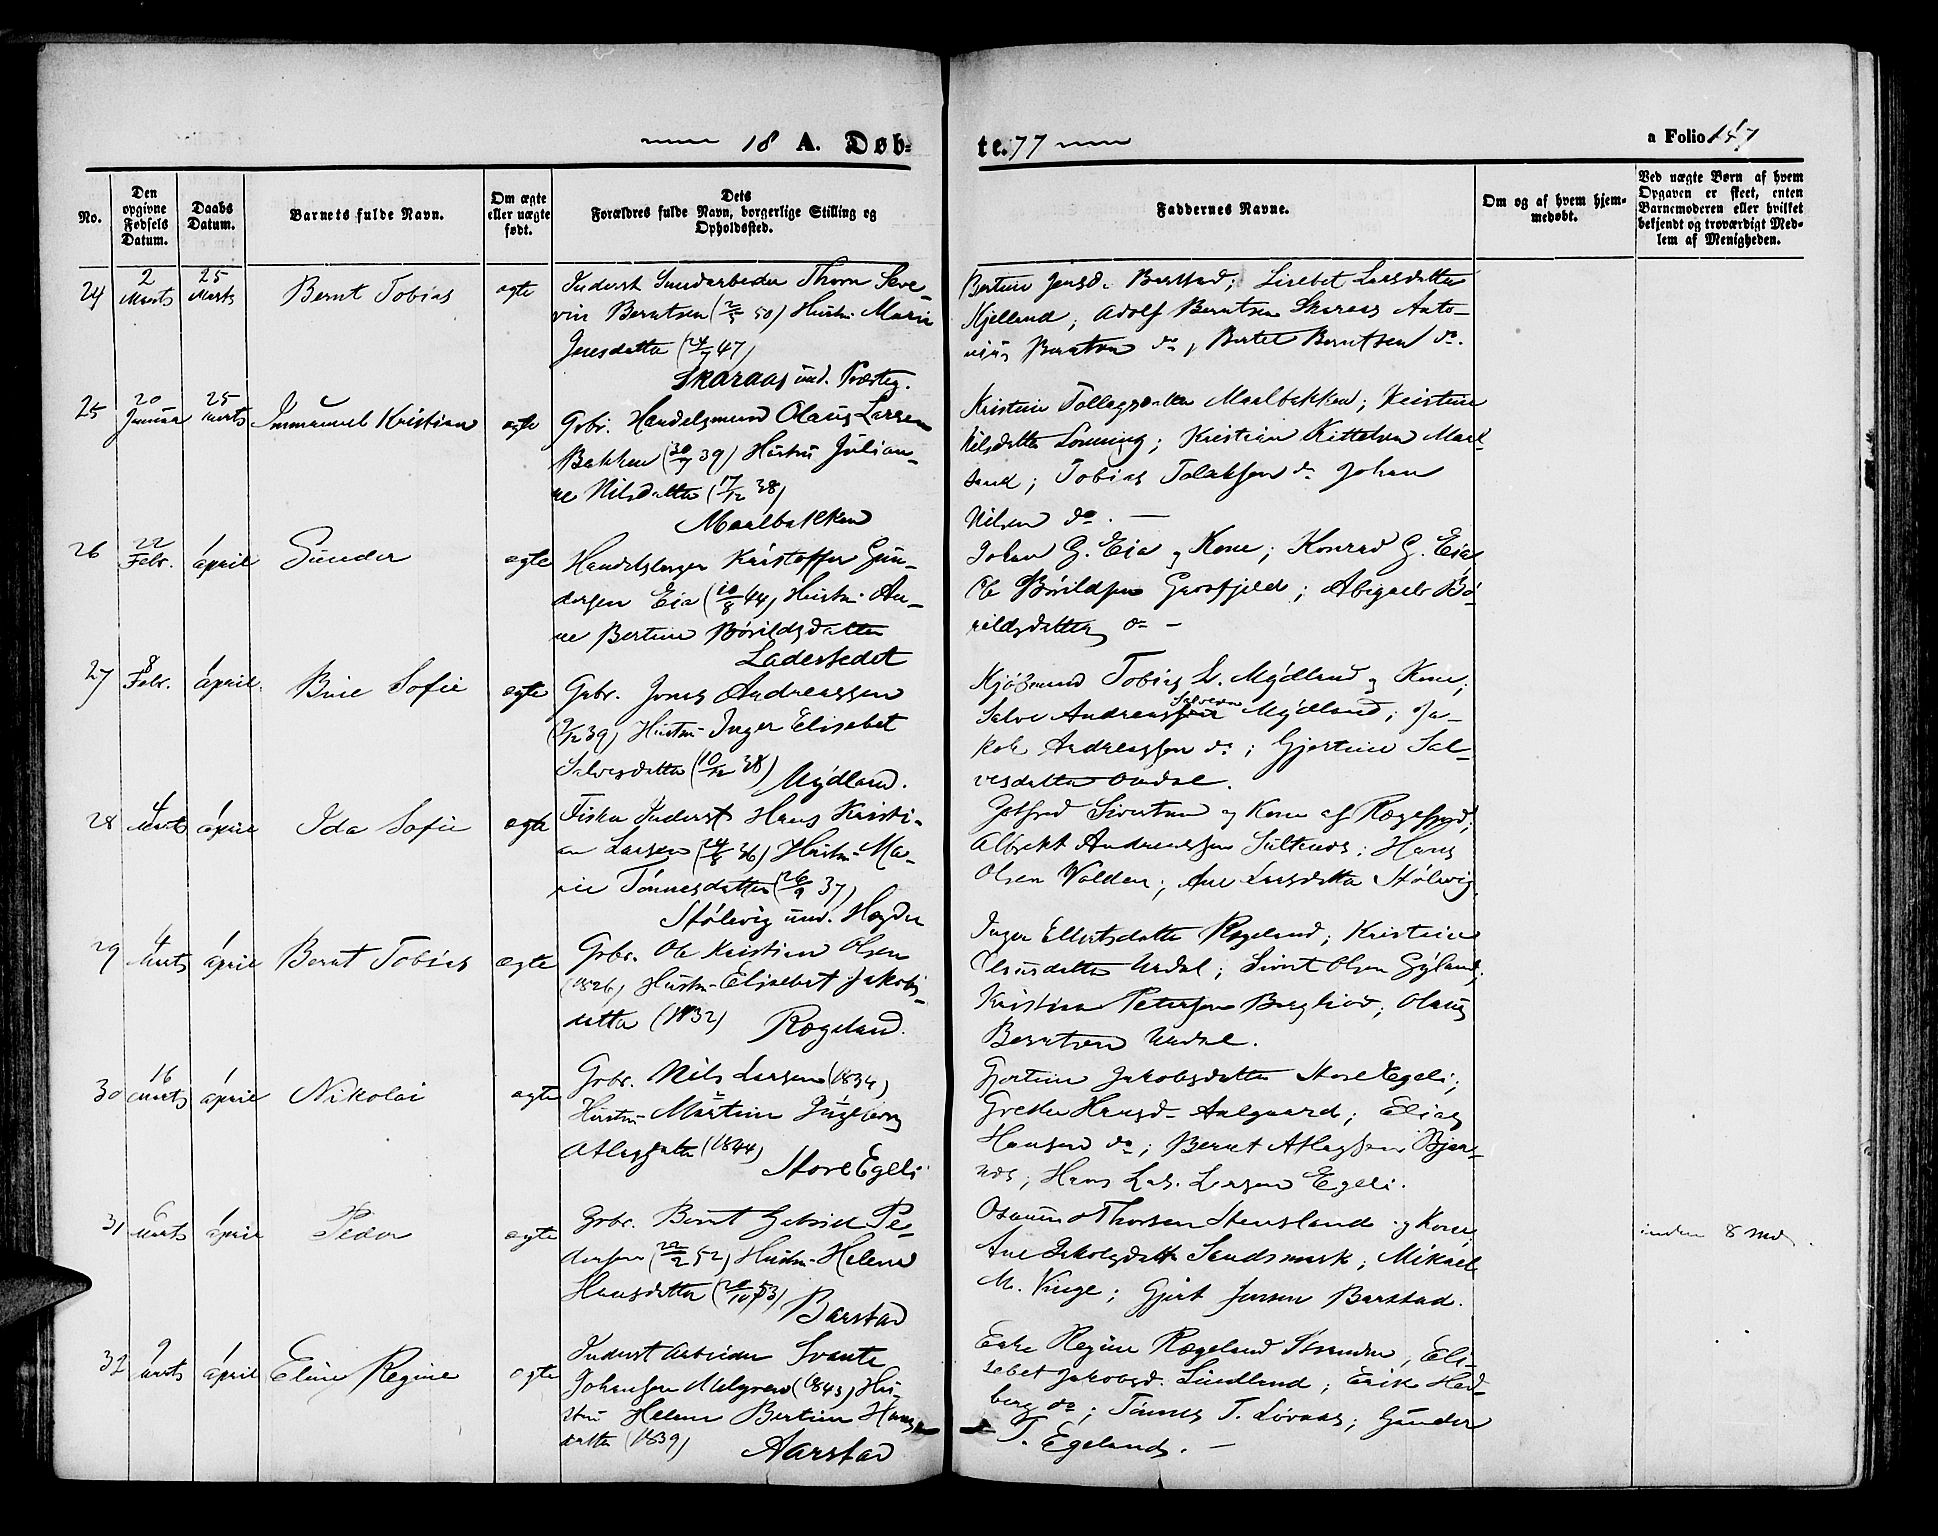 18 A. Døb-
te. 77
a Folio 147
No.
Den opgivne Fødsels Datum.
Daabs Datum.
Barnets fulde Navn.
Om ægte eller uægte født.
Dets Forældres fulde Navn, borgerlige Stilling og Opholdssted.
Faddernes Navne.
Om og af hvem hjemmedøbt.
Ved uægte Børn af hvem Opgaven er skeet, enten Barnemoderen eller hvilket bekjendt og troværdigt Medlem af Menigheden.
24
2 Marts
25 Marts
Bernt Tobias
ægte
Inderst Thorn Seve-
rin Berntsen (2/5 50) Hustru Marie
Jensdatter (24/7 47)
Skaraas und. Præsteg.
Bertine Jensd. Barstad; Lisebet Larsdatter
Kjelland; Adolf Berntsen Skaraas Anto-
nius Berntsen do, Bertel Berntsen do.
25
20 Januar
25 Marts
Immanuel Kristian
ægte
Gbr. Handelsmand Olaus Larsen
Bakken (30/7 39) Hustru Julian-
ne Nilsdatter (17/12 38)
Maalbakken
Kristine Tollagsdatter Maalbakken; Kristine
Nilsdatter Lonning; Kristian Kittelsen Mark-
sand; Tobias Tolaksen do Johan
Nilsen do. —
26
22 Febr.
1 april
Gunder
ægte
Handelsborger Kristoffer Gun-
dersen Eia (10/8 44) Hustru An-
ne Bertine Børildsdatter
Ladestedet
Johan G. Eia og Kone; Konrad G. Eia
Ole Børildsen Grosfjeld; Abigael Bø-
rildsdatter do —
27
8 Febr.
1 april.
Brie Sofie
ægte
Gbr. Jonas Andreassen
(2/12 39) Hustru Inger Elisebet
Salvesdatter (10/12 38) Mydland.
Kjøbmand Tobias L. Mydland og Kone;
Salve Andreassen Salvesen Mydland; Ja-
kob Andreassen do; Gjertine Sal-
vesdatter Omdal.
28
4 Marts
1 april
Ida Sofie
ægte
Fisker Inderst Hans Kristi-
an Larsen (24/8 36) Hustru Ma-
rie Tønnesdatter (26/9 37)
Stølsvig und. Hegder
Gotfred Sivertsen og Kone af Rægefjord;
Albrekt Andreassen; Hans
Olsen Valden; Ane Larsdatter Stølsvig.
29
4 Marts
1 april
Bernt Tobias
ægte
Gbr. Ole Kristian Olsen
(1826) Hustru Elisebet Jakobs-
datter (1832) Rægeland.
Inger Ellertsdatter Rægeland; Kristine
Olausdatter Urdal; Sivert Olsen Gyland,
Kristian Petersen Berglied; Olaus
Berntsen Urdal.
30
16 Marts
1 april
Nikolai
ægte
Gbr. Nils Larsen (1834)
Hustru Martine Ingeborg
Atlagsdatter (1844)
Store Egeli
Gjertine Jakobsdatter Store Egeli;
Grethe Hansd. Aalgaard; Elias
Hansen do; Bernt Atlagsen Bjer-
nes; Hans Las. Larsen Egeli.
31
6 Marts
1 april
Peder
ægte
Gbr. Bernt Gabriel Pe-
dersen (22/2 52) Hustru Helene
Hansdatter (20/10 53)
Barstad
Osmund Thorsen Stensland og Kone,
Ane Jakobsdatter Sandsmark; Mikael
M. Vinge; Gjert Jensen Barstad.
inden 8 Md.
32
9 Marts
1 april
Eline Regine
ægte
Inderst Arbeider Svante
Johansen Malgren (1843) Hu-
stru Helene Bertine Hans-
datter (1839)
Aarstad
Enke Regine Rægeland Stranden, Eli-
sebet Jakobsd. Lindland; Erik Hed-
berg do; Tønnes T. Løvaas; Gunder
T. Egelands. —